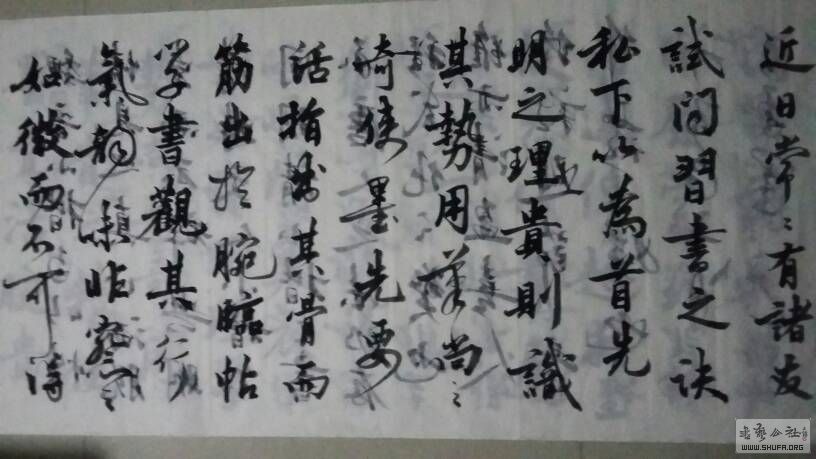 近日常々有諸友
試问習書之诀
私下以為首先
明之理貴則識
其勢用筆尚々
使墨先要
活指为其骨而
筋出於腕臨帖
学書觀其行
氣韵非察々
細微而不可得
书艺公社
WWW.SHUFA.ORG